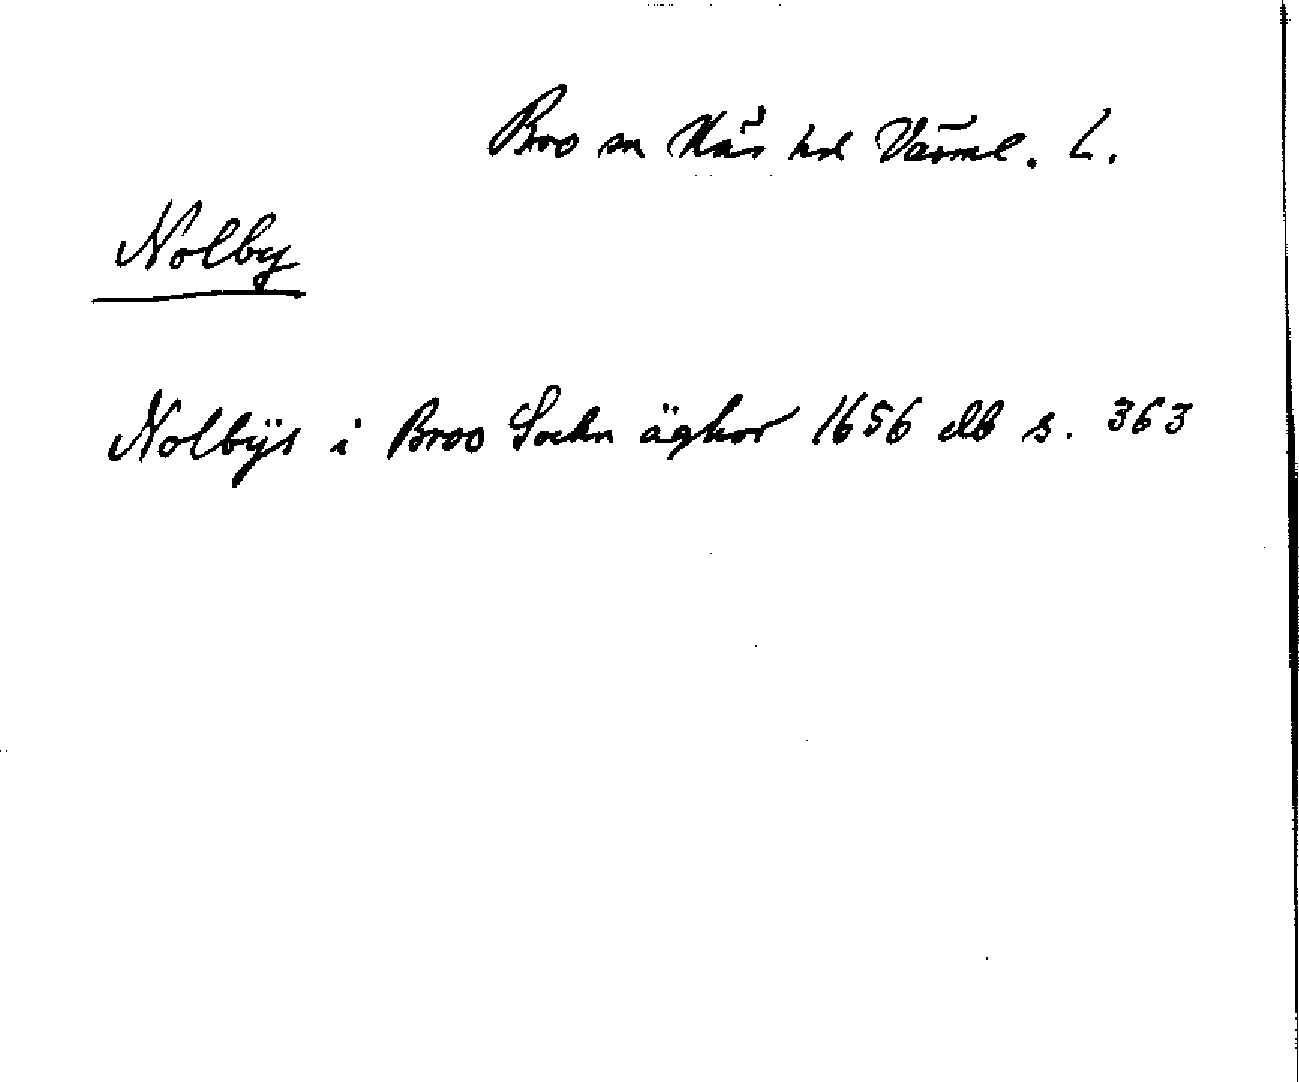 Bro sn Näs hd Värml. L.
Nolby
Nolbÿs i Broo Sochn äghor 1656 db s. 363